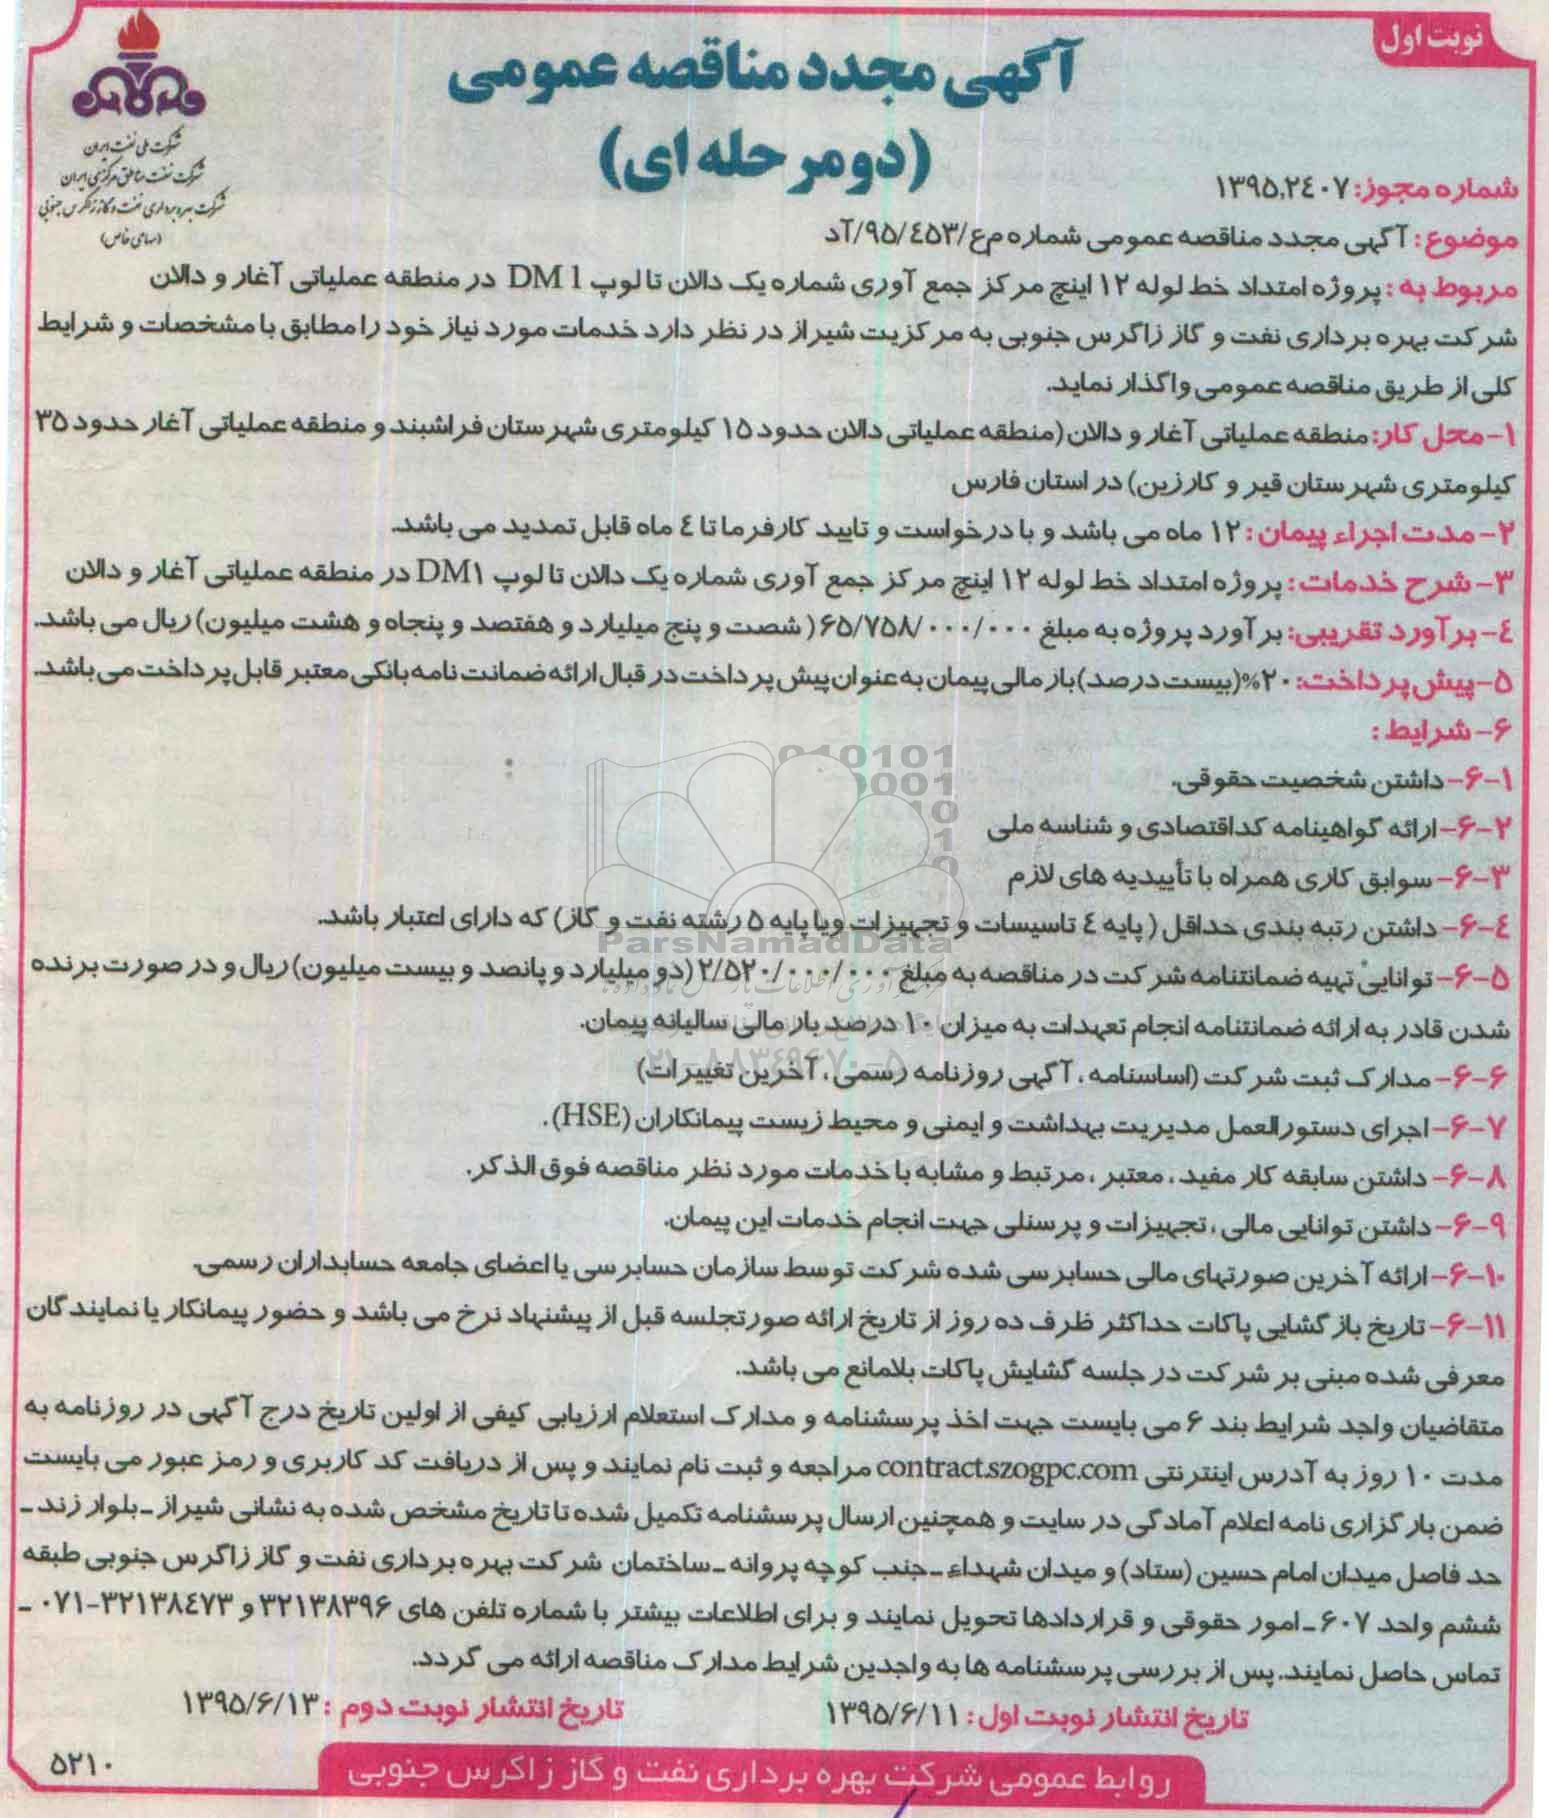 نوبت اول
آگهی مجدد مناقصه عمومی
(دومرحله ای)
شرکت ملی نفت ایران
شرکت نفت مناطق مرکزی ایران
شرکت بهره برداری نفت و گاز زاگرس جنوبی
(سهامی خاص)
شماره مجوز: ۱۳۹۵,۲٤۰۷
موضوع: آگهی مجدد مناقصه عمومی شماره م‌ع/۹۵/٤۵۳/آد
مربوط به: پروژه امتداد خط لوله ۱۲ اینچ مرکز جمع آوری شماره یک دالان تا لوپ DM 1 در منطقه عملیاتی آغار و دالان
شرکت بهره برداری نفت و گاز زاگرس جنوبی به مرکزیت شیراز در نظر دارد خدمات مورد نیاز خود را مطابق با مشخصات و شرایط
کلی از طریق مناقصه عمومی واگذار نماید.
۱-محل کار: منطقه عملیاتی آغار و دالان (منطقه عملیاتی دالان حدود ۱۵ کیلومتری شهرستان فراشبند و منطقه عملیاتی آغار حدود ۳۵
کیلومتری شهرستان قیر و کارزین) در استان فارس
۲-مدت اجراء پیمان: ۱۲ ماه می باشد و با درخواست و تایید کارفرما تا ٤ ماه قابل تمدید می باشد.
۳-شرح خدمات: پروژه امتداد خط لوله ۱۲ اینچ مرکز جمع آوری شماره یک دالان تا لوپ DM۱ در منطقه عملیاتی آغار و دالان
٤-برآورد تقریبی: برآورد پروژه به مبلغ ۶۵/۷۵۸/۰۰۰/۰۰۰ (شصت و پنج میلیارد و هفتصد و پنجاه و هشت میلیون) ریال می باشد.
۵-پیش پرداخت: ۲۰%(بیست درصد) بار مالی پیمان به عنوان پیش پرداخت در قبال ارائه ضمانت نامه بانکی معتبر قابل پرداخت می باشد.
۶-شرایط:
۶-۱-داشتن شخصیت حقوقی.
۶-۲-ارائه گواهینامه کد اقتصادی و شناسه ملی
۶-۳-سوابق کاری همراه با تأییدیه های لازم
۶-٤-داشتن رتبه بندی حداقل (پایه ٤ تاسیسات و تجهیزات ویا پایه ۵ رشته نفت و گاز) که دارای اعتبار باشد.
ParsNamadData
۶-۵-توانایی تهیه ضمانتنامه شرکت در مناقصه به مبلغ ۲/۵۲۰/۰۰۰/۰۰۰ (دو میلیارد و پانصد و بیست میلیون) ریال و در صورت برنده
شدن قادر به ارائه ضمانتنامه انجام تعهدات به میزان ۱۰ درصد بار مالی سالیانه پیمان.
۰۲۱-۸۸۳٤۹۶۷۰-۵
۶-۶-مدارک ثبت شرکت (اساسنامه، آگهی روزنامه رسمی، آخرین تغییرات)
۶-۷-اجرای دستورالعمل مدیریت بهداشت و ایمنی و محیط زیست پیمانکاران (HSE).
۶-۸-داشتن سابقه کار مفید، معتبر، مرتبط و مشابه با خدمات مورد نظر مناقصه فوق الذکر.
۶-۹-داشتن توانایی مالی، تجهیزات و پرسنلی جهت انجام خدمات این پیمان.
۶-۱۰-ارائه آخرین صورتهای مالی حسابرسی شده شرکت توسط سازمان حسابرسی یا اعضای جامعه حسابداران رسمی.
۶-۱۱-تاریخ بازگشایی پاکات حداکثر ظرف ده روز از تاریخ ارائه صورتجلسه قبل از پیشنهاد نرخ می باشد و حضور پیمانکار یا نمایندگان
معرفی شده مبنی بر شرکت در جلسه گشایش پاکات بلامانع می باشد.
متقاضیان واجد شرایط بند ۶ می بایست جهت اخذ پرسشنامه و مدارک استعلام ارزیابی کیفی از اولین تاریخ درج آگهی در روزنامه به
مدت ۱۰ روز به آدرس اینترنتی contract.szogpc.com مراجعه و ثبت نام نمایند و پس از دریافت کد کاربری و رمز عبور می بایست
ضمن بارگزاری نامه اعلام آمادگی در سایت و همچنین ارسال پرسشنامه تکمیل شده تا تاریخ مشخص شده به نشانی شیراز ـ بلوار زند ـ
حد فاصل میدان امام حسین (ستاد) و میدان شهداء ـ جنب کوچه پروانه ـ ساختمان شرکت بهره برداری نفت و گاز زاگرس جنوبی طبقه
ششم واحد ۶۰۷ ـ امور حقوقی و قراردادها تحویل نمایند و برای اطلاعات بیشتر با شماره تلفن های ۳۲۱۳۸۳۹۶ و ۳۲۱۳۸٤۷۳-۰۷۱ ـ
تماس حاصل نمایند. پس از بررسی پرسشنامه ها به واجدین شرایط مدارک مناقصه ارائه می گردد.
تاریخ انتشار نوبت اول: ۱۳۹۵/۶/۱۱ تاریخ انتشار نوبت دوم: ۱۳۹۵/۶/۱۳
روابط عمومی شرکت بهره برداری نفت و گاز زاگرس جنوبی
۵۲۱۰